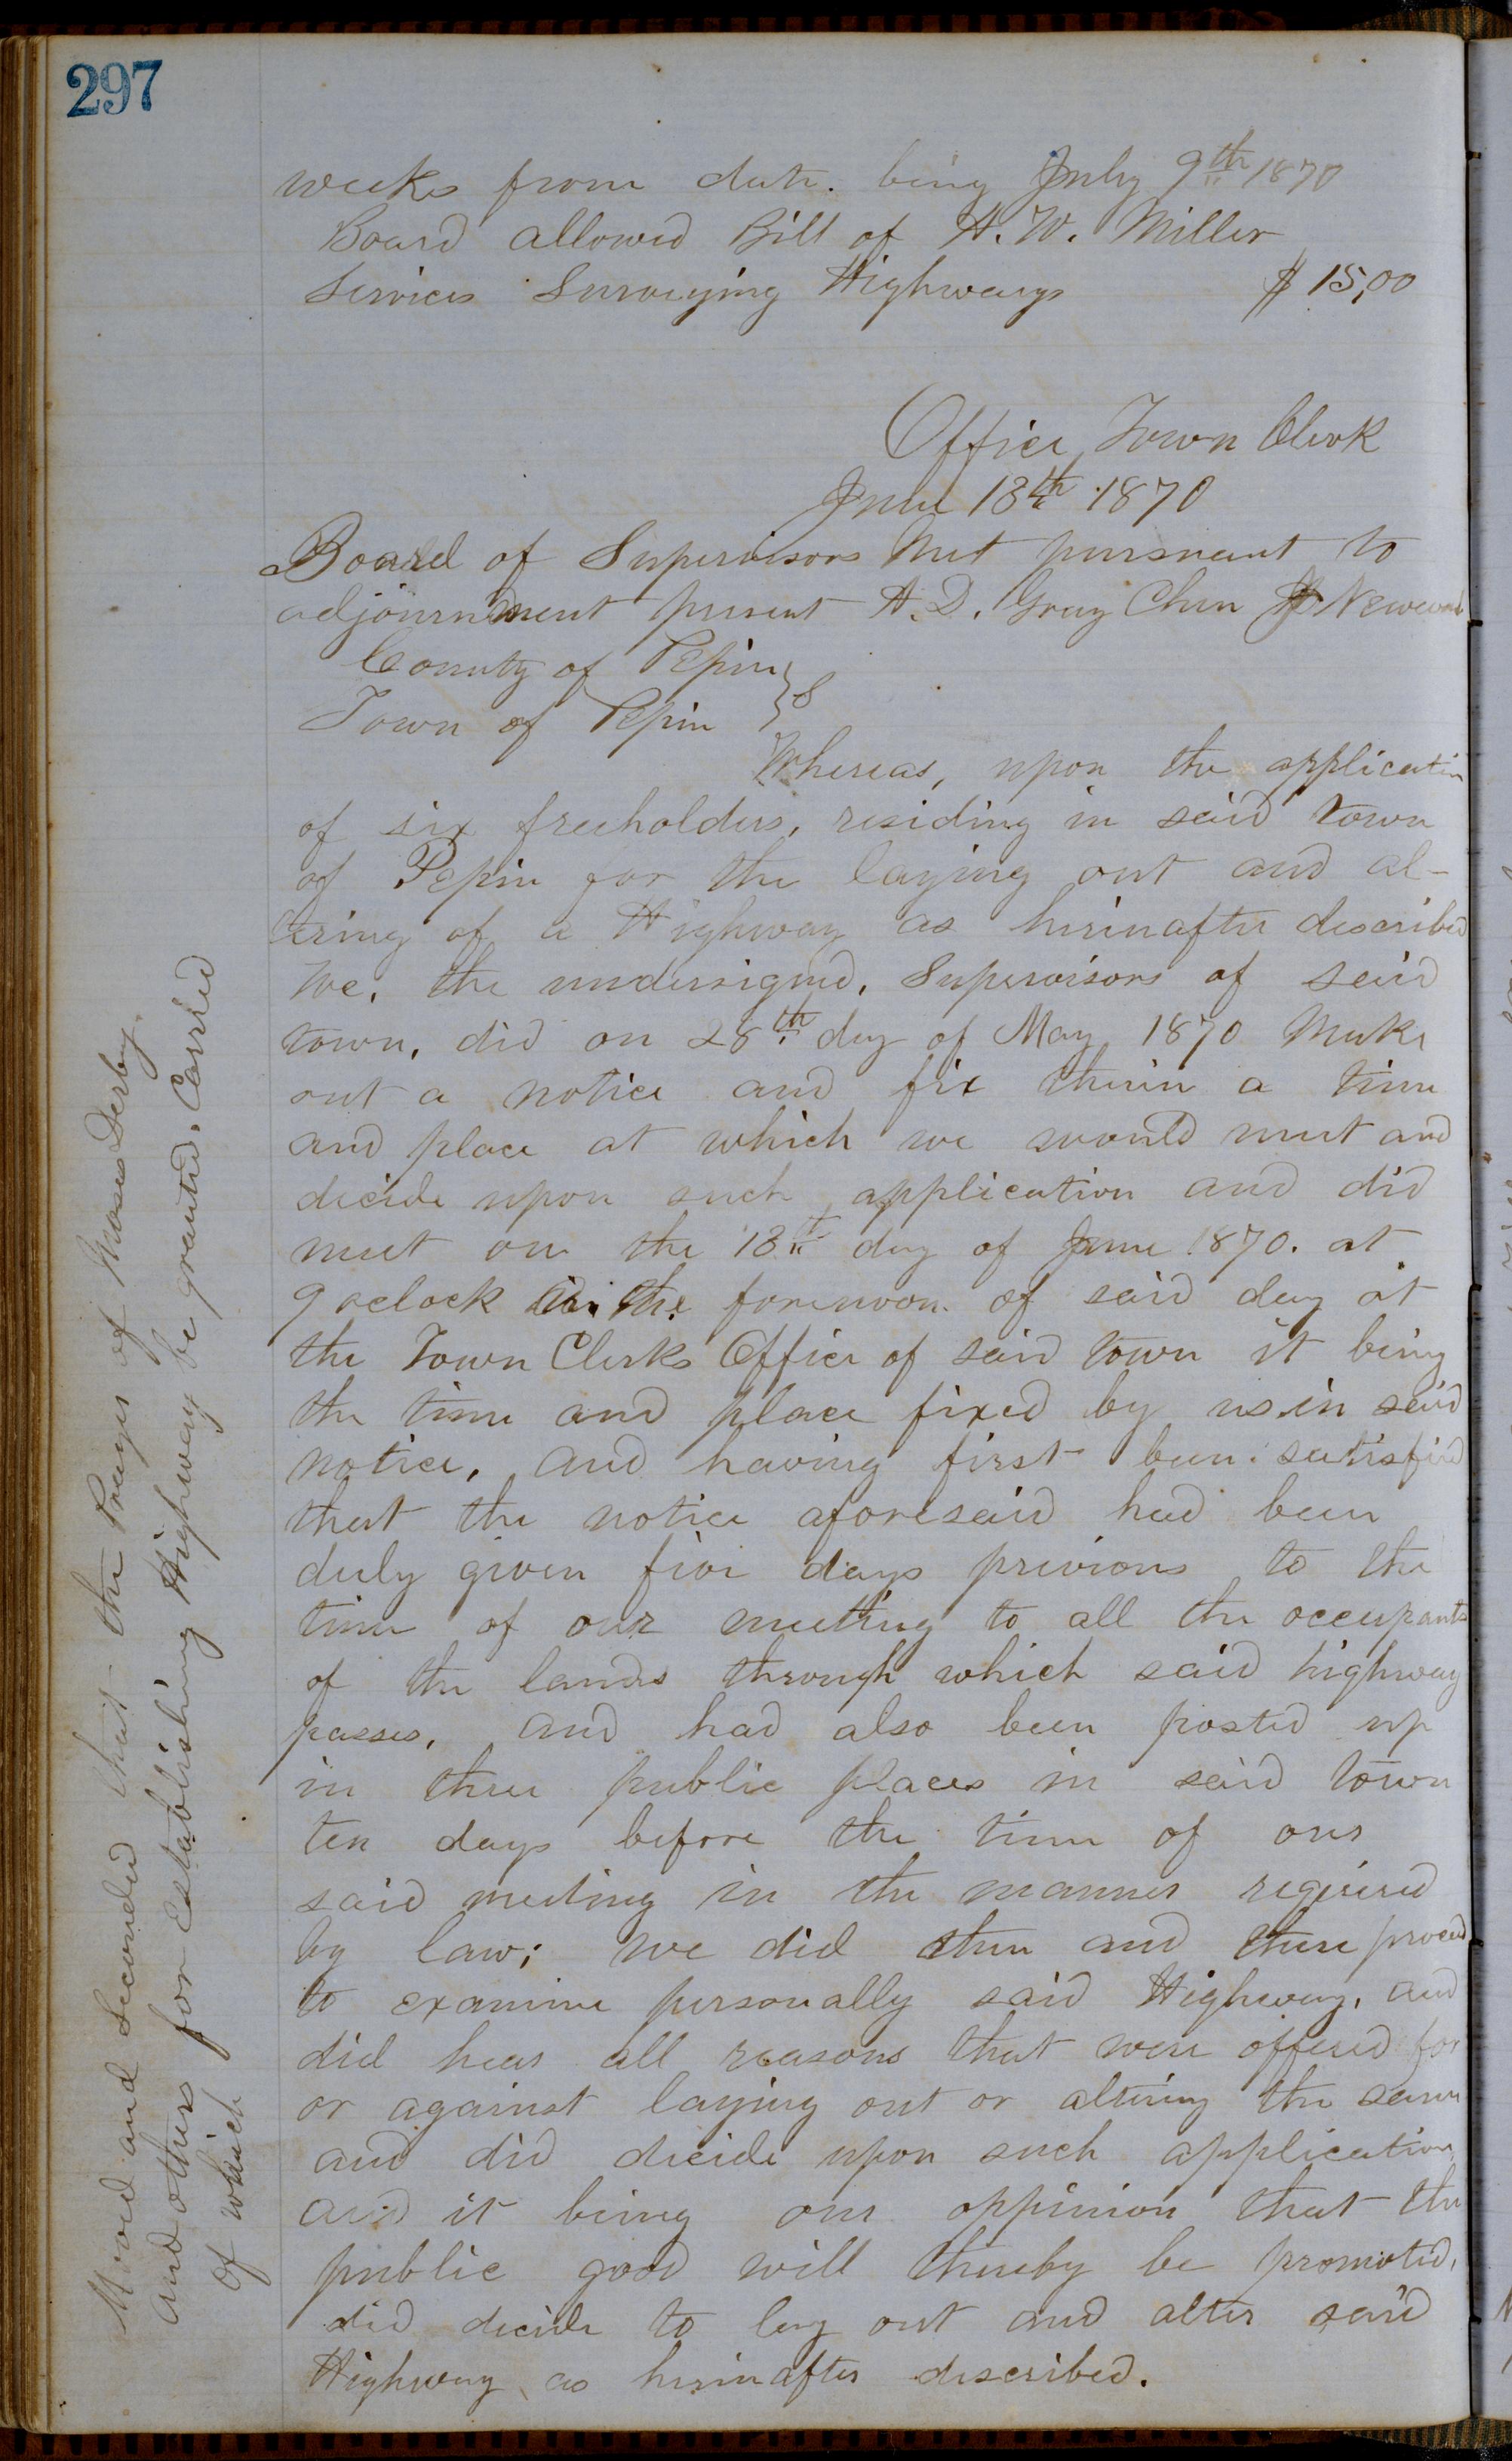 297
weeks from date. being July 9th 1870
Board allowed Bill of A. W. Miller
Services Surveying Highways $15,00
Office Town Clerk
June 18th 1870
Board of Supervisors Met pursuant to
adjournment present A. D. Gray Chm
County of Pepin
Town of Pepin } S
Whereas, upon the application
of six freeholders, residing in said town
of Pepin for the laying out and al-
tering of a Highway as herinafter described
We, the undersigned, Supervisors of said
town, did on 28th day of May 1870 Make
out a notice and fix therin a time
and place at which we would meet and
decide upon such application and did
meet on the 18th day of June 1870. at
9 oclock in the forenoon of said day at
the Town Clerks Office of said town it being
the time and place fixed by us in said
notice, and having first been satisfied
that the notice aforesaid had been
duly given five days previous to the
time of our meeting to all the occupants
of the lands through which said highway
passes, and had also been posted up
in three public places in said town
ten days before the time of our
said meeting in the manner required
by law; we did then and there proceed
to examine personally said Highway, and
did hear all reasons that were offered for
or against laying out or altering the same
and did decide upon such application
and it being our oppinion that the
public good will thereby be promoted,
did decide to lay out and alter said
Highway as herinafter described.
Moved and Seconded that the Prayer of Moses Derby
and others for Establishing Highway be granted. Carried
of which